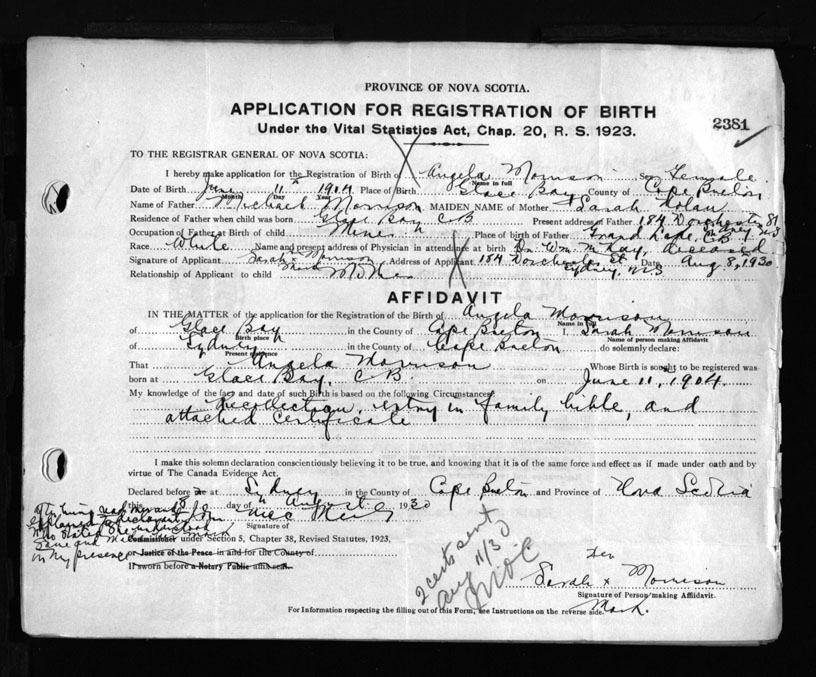 PROVINCE OF NOVA SCOTIA.
APPLICATION FOR REGISTRATION OF BIRTH
2381
Under the Vital Statistics Act, Chap. 20, R. S. 1923.
TO THE REGISTRAR GENERAL OF NOVA SCOTIA:
I hereby make application for the Registration of Birth of Angela Morrison Sex Female
Name in full
Date of Birth June 11th 1904 Place of Birth Glace Bay County of Cape Breton
Month Day Year
Name of Father Michael Morrison MAIDEN NAME of Mother Sarah Nolan
Residence of Father when child was born Glace Bay CB Present address of Father 184 Dorchester St
Sydney NS
Occupation of Father at Birth of child Miner Place of birth of Father Grand Lake, C B
Race White Name and present address of Physician in attendance at birth Dr. Wm McKay, deceased
Signature of Applicant Sarah x Morrison Address of Applicant 184 Dorchester St Date Aug 8, 1930
mark Sydney, NS
Relationship of Applicant to child Mother
AFFIDAVIT
IN THE MATTER of the application for the Registration of the Birth of Angela Morrison
Name in full
of Glace Bay in the County of Cape Breton I, Sarah Morrison
Birth place Name of person making Affidavit
of Sydney in the County of Cape Breton do solemnly declare:
Present residence
That Angela Morrison Whose Birth is sought to be registered was
born at Glace Bay, CB on June 11, 1904.
My knowledge of the fact and date of such Birth is based on the following Circumstances
Recollection, entry in family bible, and
attached certificate
I make this solemn declaration conscientiously believing it to be true, and knowing that it is of the same force and effect as if made under oath and by
virtue of The Canada Evidence Act.
Declared before me at Sydney in the County of Cape Breton and Province of Nova Scotia
this 8 day of August 1930
Signature of
Commissioner under Section 5, Chapter 38, Revised Statutes, 1923,
or Justice of the Peace in and for the County of
If sworn before a Notary Public affix seal.
having read and
explained to
who stated
same and made mark
in my presence
2 certs sent
Aug 11/30
her
Sarah x Morrison
Signature of Person making Affidavit.
Mark.
For Information respecting the filling out of this Form, see Instructions on the reverse side.